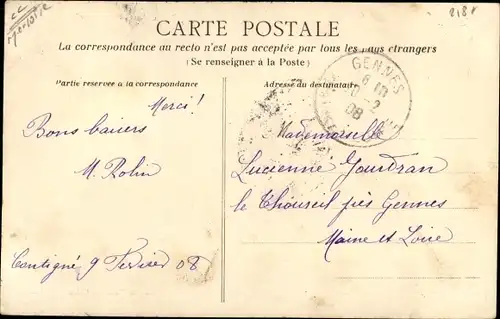 CARTE POSTALE
La correspondance au recto n'est pas acceptée par tous les pays étrangers
(Se renseigner à la Poste)
Partie réservée à la correspondance
Adresse du destinataire
Merci!
Bons baisers
M. Rolin
Contigné 9 Février 08
GENNES
08
Mademoiselle
Lucienne Jourdran
le Thoureil près Gennes
Maine et Loire